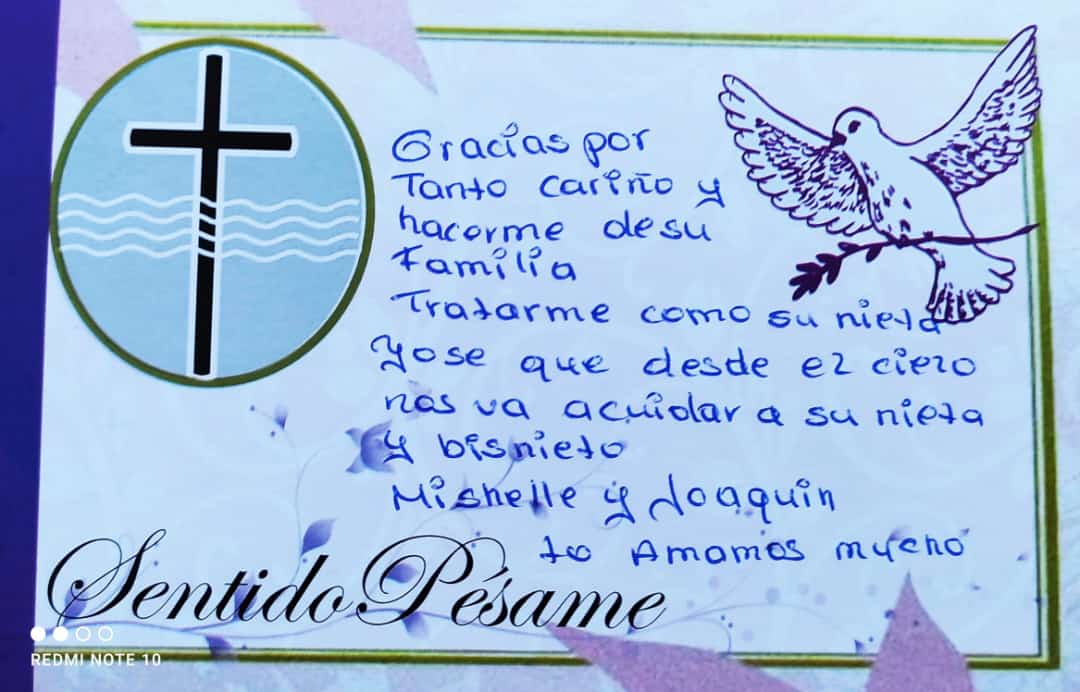 Gracias por
Tanto cariño y
hacerme de su
Familia
Tratarme como su nieta
Yo se que desde el cielo
nos va acuidar a su nieta
y bisnieto
Mishelle y Joaquin
te Amamos mucho
Sentido Pésame
REDMI NOTE 10